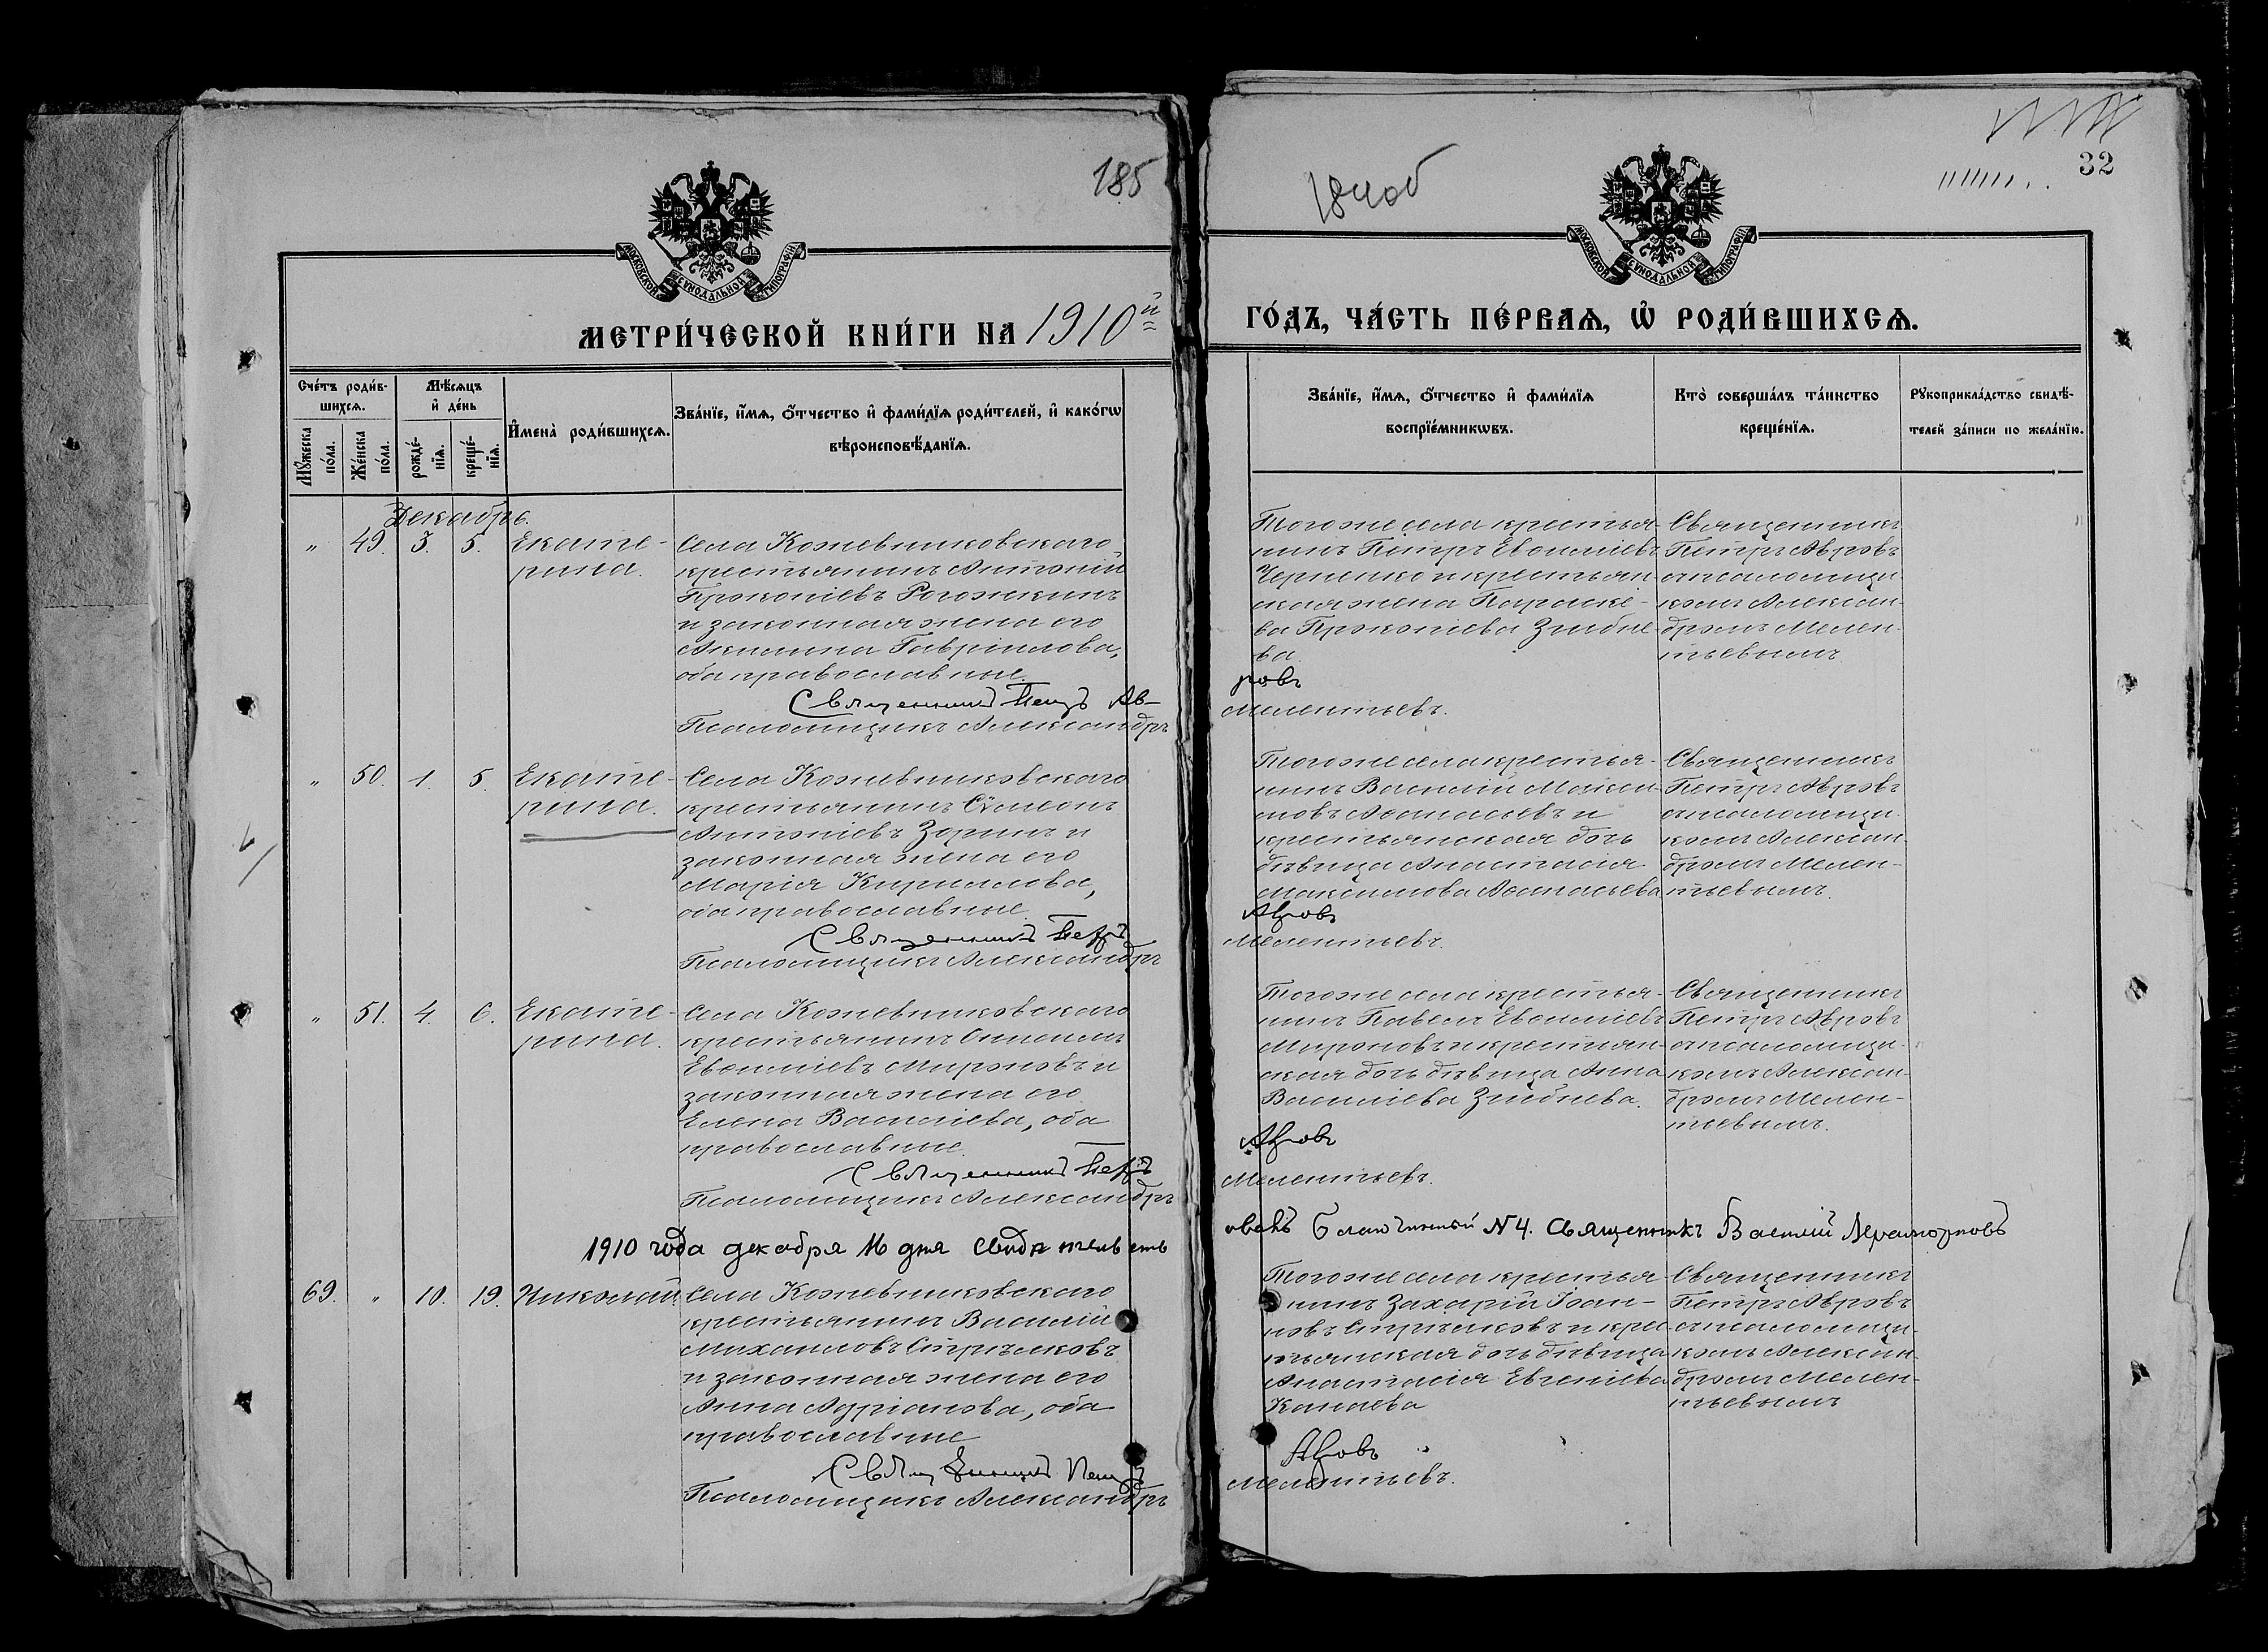 185
МОСКОВСКОЙ СѴНОДАЛЬНОЙ ТИПОГРАФІИ
МЕТРИ́ЧЕСКОЙ КНИ́ГИ НА 1910й
Сче́тъ роди́в-
шихсѧ.
Мꙋ́жеска по́ла.
Же́нска по́ла.
Мѣ́сѧцъ
и҆ де́нь
рожде́-
нїѧ.
креще́-
нїѧ.
И҆мена̀ роди́вшихсѧ.
Зва́нїе, и҆́мѧ, ѻ҆́тчество и҆ фами́лїѧ роди́телей, и҆ како́гѡ
вѣроисповѣ́данїѧ.
Декабрь.
" 49. 3. 5. Екате-
рина.
Села Кожевниковскаго,
крестьянинъ Антоній
Прокопіевъ Рогожкинъ
и законная жена его
Акилина Гавріилова,
оба православные.
Священникъ Петръ Ав-
Псаломщикъ Александръ
" 50. 1. 5. Екате-
рина.
Села Кожевниковскаго
крестьянинъ Сѵмеонъ
Антоніевъ Зоринъ и
законная жена его
Марія Кириллова,
оба православные.
Священникъ Петръ
Псаломщикъ Александръ
" 51. 4. 6. Екате-
рина.
Села Кожевниковскаго
крестьянинъ
Евѳиміевъ Мироновъ и
законная жена его
Елена Василіева, оба
православные.
Священникъ Петръ
Псаломщикъ Александръ
1910 года декабря 16 дня свидѣтельств
69. " 10. 19. Николай.
Села Кожевниковскаго
крестьянинъ Василій
Михаиловъ Стрѣлковъ
и законная жена его
Анна Адріанова, оба
православные
Священникъ Петръ
Псаломщикъ Александръ
184об
32
МОСКОВСКОЙ СѴНОДАЛЬНОЙ ТИПОГРАФІИ
ГО́ДЪ, ЧА́СТЬ ПЕ́РВАѦ, Ѡ҆ РОДИ́ВШИХСѦ.
Зва́нїе, и҆́мѧ, ѻ҆́тчество и҆ фами́лїѧ
воспрїе́мникѡвъ.
Кто̀ соверша́лъ та́инство
креще́нїѧ.
Рꙋкоприкла́дство свидѣ́-
телей за́писи по жела́нїю.
Того же села крестья-
нинъ Петръ Евѳиміевъ
Черненко и крестьян-
ская жена Параске-
ва Прокопіева Зиబне-
ва
Священникъ
Петръ Авровъ
с псаломщи-
комъ Алексан-
дромъ Мелен-
тьевымъ
ровъ
Мелентьевъ.
Того же села крестья-
нинъ Василій Макси-
мовъ Аѳанасьевъ и
крестьянская дочь
дѣвица Анастасія
Максимова Аѳанасьева
Священникъ
Петръ Авровъ
с псаломщи-
комъ Алексан-
дромъ Мелен-
тьевымъ.
Авровъ
Мелентьевъ.
Того же села крестья-
нинъ Павелъ Евѳиміевъ
Мироновъ и крестьян-
ская дочь дѣвица Анна
Василіева
Священникъ
Петръ Авровъ
с псаломщи-
комъ Алексан-
дромъ Мелен-
тьевымъ.
Авровъ
Мелентьевъ.
овалъ Благочинный N4. Священникъ Василій
Того же села крестья-
нинъ Захарій Іоан-
новъ Стрѣлковъ и крес-
тьянская дочь дѣвица
Анастасія Евгеніева
Канаева
Священникъ
Петръ Авровъ
с псаломщи-
комъ Алексан-
дромъ Мелен-
тьевымъ
Авровъ
Мелентьевъ.